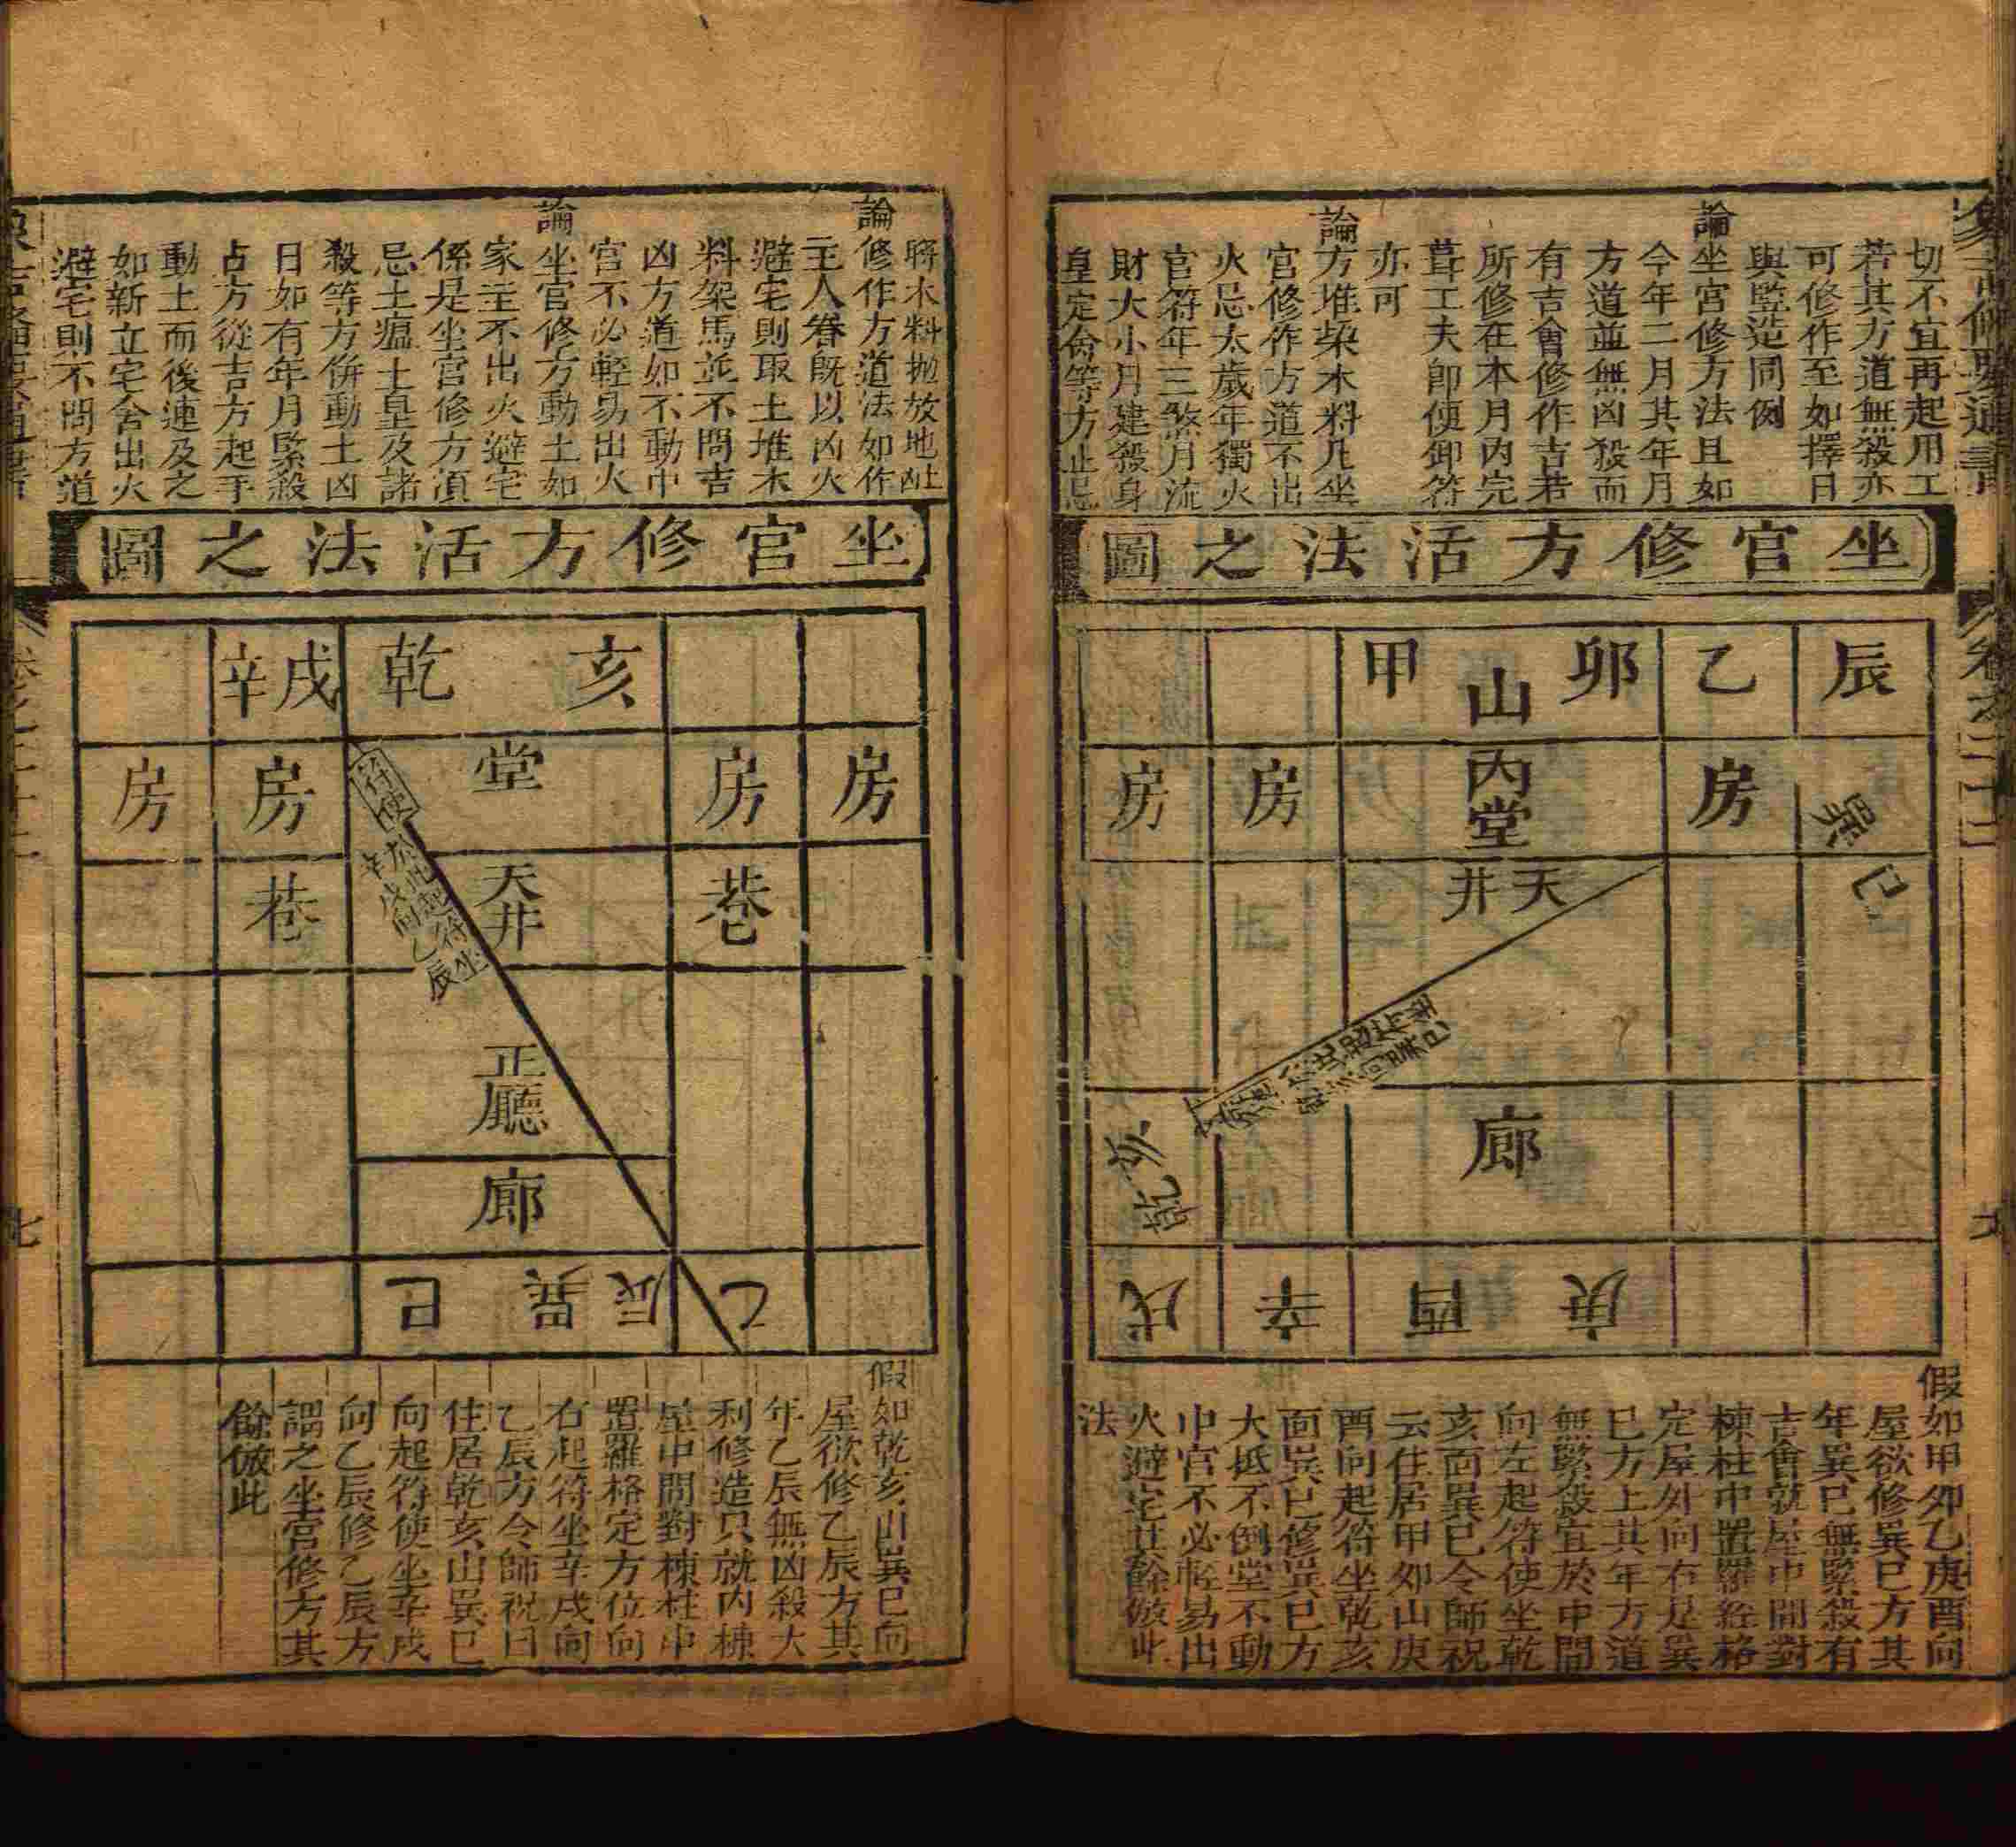 切不宜再起用工
若其方道無殺亦
可修作至如擇日
與監造同例
論坐宮修方法且如
今年二月其年月
方道並無凶殺而
有吉會修作吉若
所修在本月內完
葺工夫即便卸符
亦可
論方堆柴木料凡坐
官修作方道不出
火忌太歲年獨火
官符年三煞月流
財大小月建殺身
皇定命等方止忌
坐官修方活法之圖
辰 乙 卯 山 甲
巽 房 內堂 房 房
巳 天井
廊
亥 乾
庚 酉 辛 戌
假如甲卯乙庚酉向
屋欲修巽巳方其
年巽巳無緊殺有
吉會就屋中間對
棟柱中置羅經格
定屋外向右是巽
巳方上其年方道
無緊殺宜於中間
向左起符使坐乾
亥面巽巳令師祝
云住居甲卯山庚
酉向起符坐乾亥
面巽巳修巽巳方
大抵不倒堂不動
中宮不必輕易出
火避宅其餘倣此
法
聨木料拋放地址
論修作方道法如作
主人眷既以凶火
避宅則取土堆木
料架馬並不問吉
凶方道如不動中
宮不必輕易出火
論坐官修方動土如
家主不出火避宅
係是坐宮修方須
忌土瘟土皇及諸
殺等方併動土凶
日如有年月緊殺
占方從吉方起手
動土而後連及之
如新立宅舍出火
避宅則不問方道
坐官修方活法之圖
亥 乾 戌 辛
房 房 堂 房 房
符使
巷 天井 巷
正廳
廊
乙 辰 巽 巳
假如乾亥山巽巳向
屋欲修乙辰方其
年乙辰無凶殺大
利修造只就內棟
屋中間對棟柱中
置羅格定方位向
右起符坐辛戌向
乙辰方令師祝曰
住居乾亥山巽巳
向起符使坐辛戌
向乙辰修乙辰方
謂之坐宮修方其
餘倣此